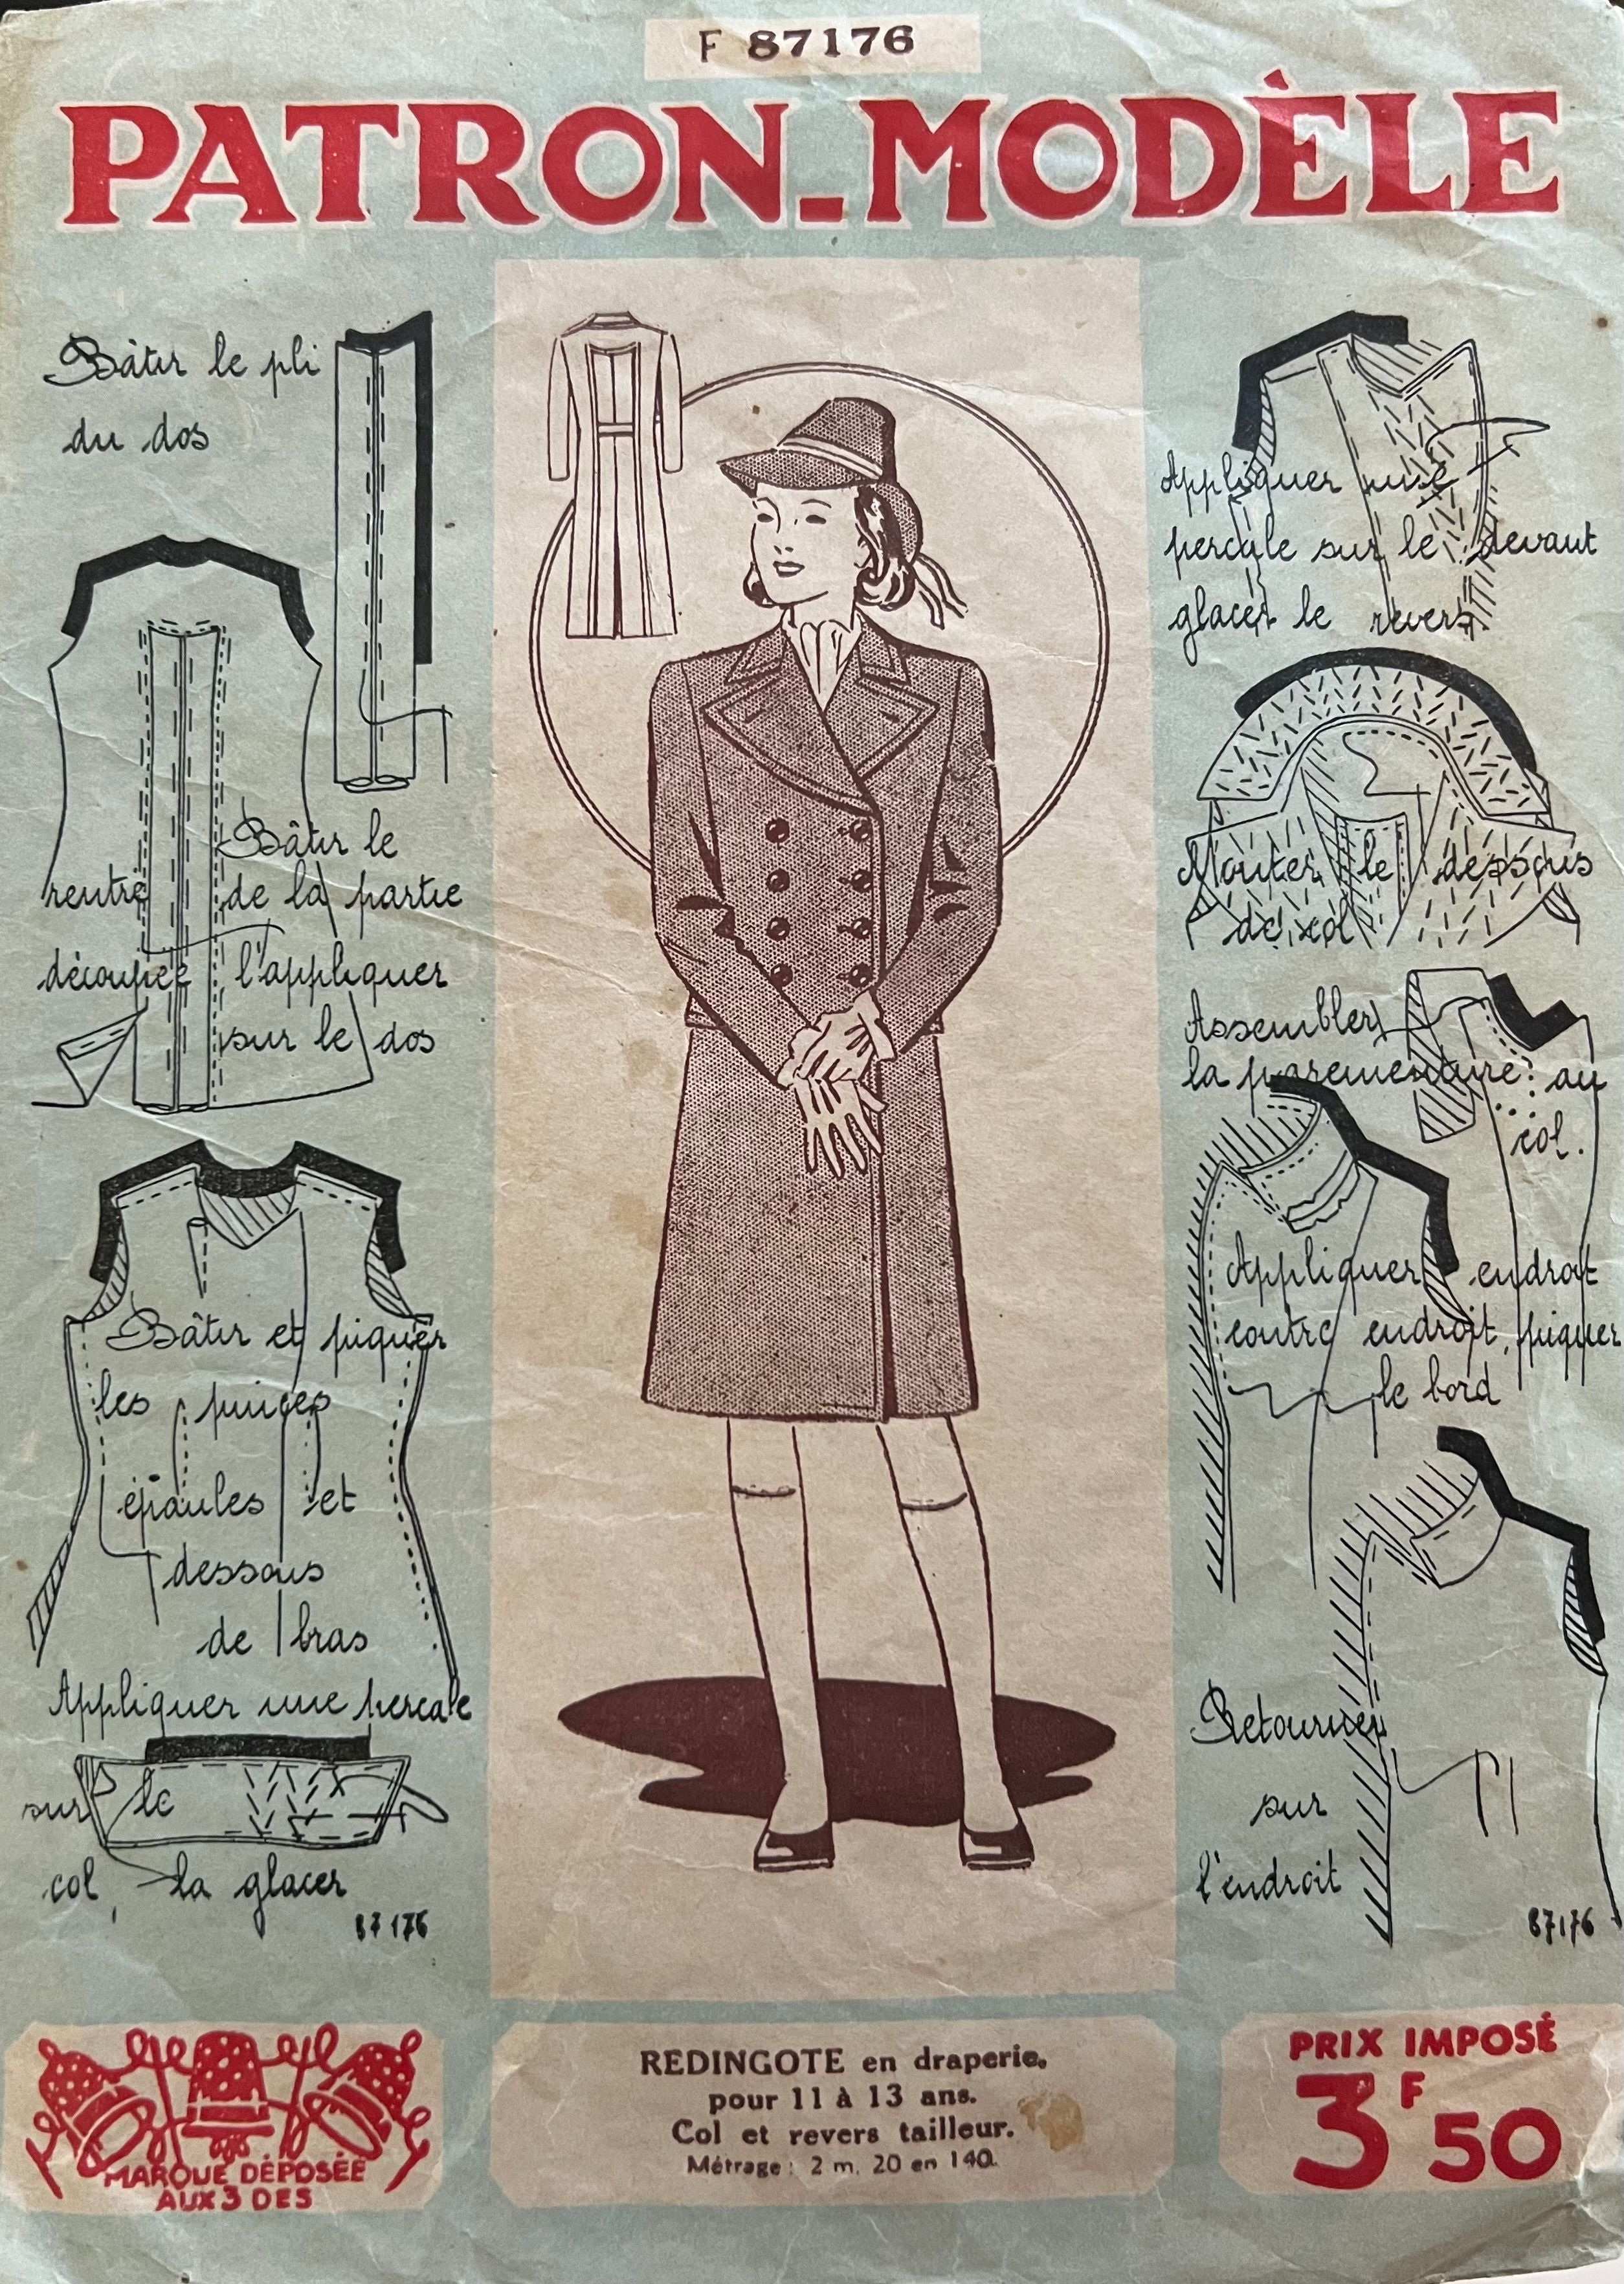 F 87176
PATRON-MODÈLE
Bâtir le pli
du dos
Bâtir le
rentré de la partie
découpée l'appliquer
sur le dos
Bâtir et piquer
les pinces
épaules et
dessous
de bras
Appliquer une percale
sur le
col, la glacer
87176
Appliquer une
percale sur le devant
glacer le revers
Monter le dessous
de col
Assembler
la parementure au
col.
Appliquer endroit
contre endroit, piquer
le bord
Retourner
sur
l'endroit
87176
MARQUE DÉPOSÉE
AUX 3 DES
REDINGOTE en draperie.
pour 11 à 13 ans.
Col et revers tailleur.
Métrage : 2 m. 20 en 140.
PRIX IMPOSÉ
3F50